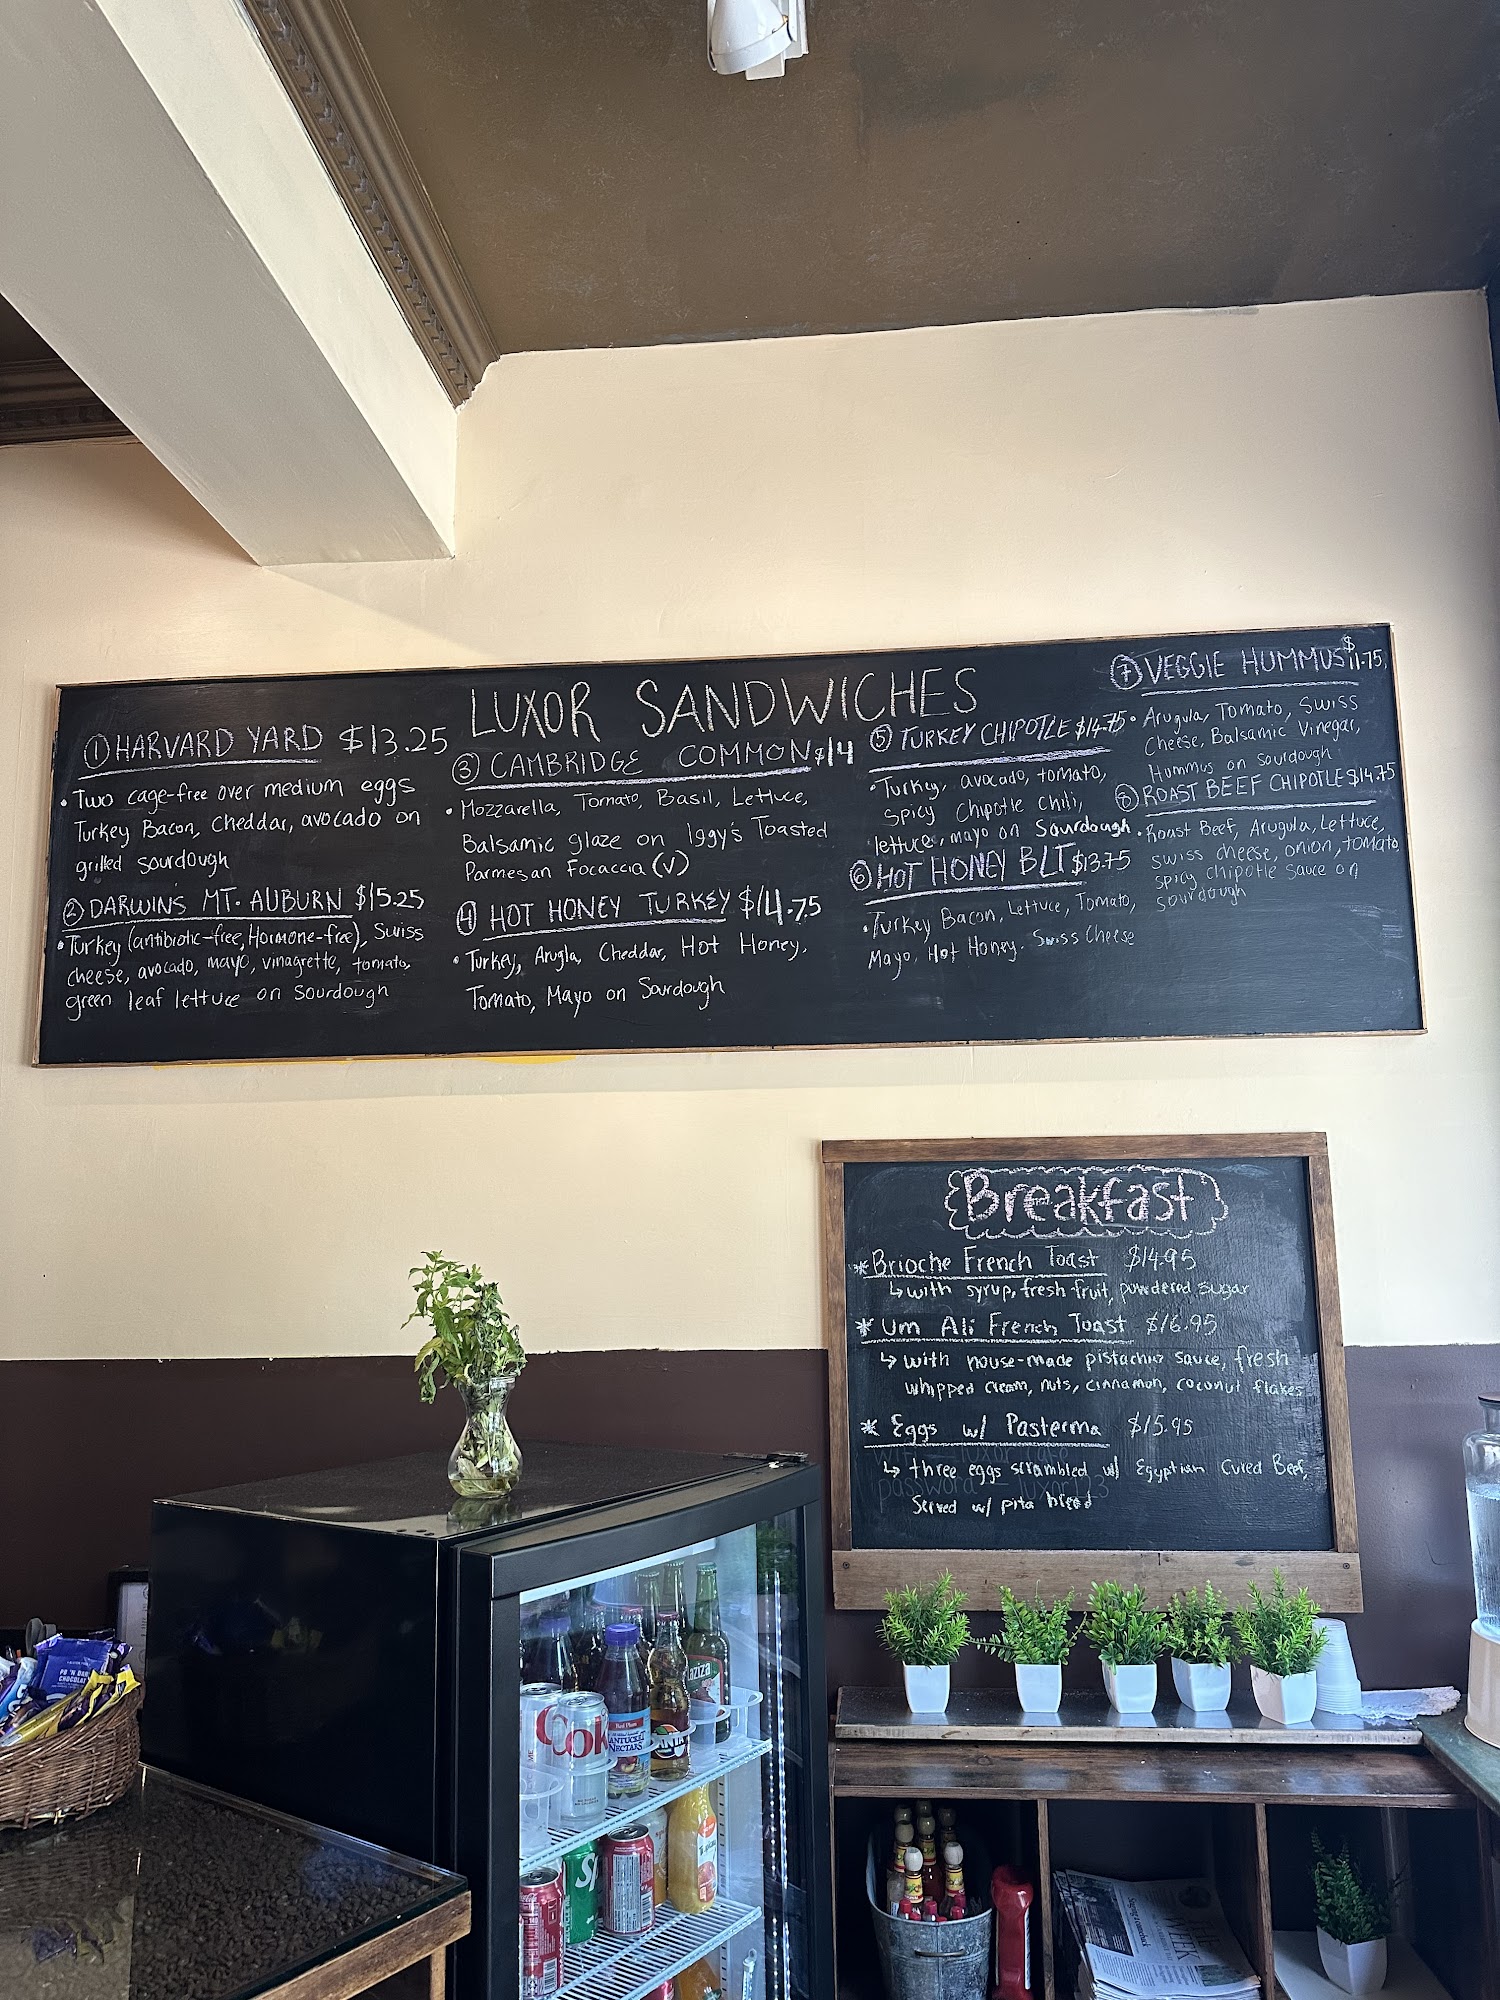 LUXOR SANDWICHES
① HARVARD YARD $13.25
• Two cage-free over medium eggs
Turkey Bacon, cheddar, avocado on
grilled sourdough
② DARWIN'S MT. AUBURN $15.25
• Turkey (antibiotic-free, Hormone-free), Swiss
cheese, avocado, mayo, vinagrette, tomato,
green leaf lettuce on Sourdough
③ CAMBRIDGE COMMON $14
• Mozzarella, Tomato, Basil, Lettuce,
Balsamic glaze on Iggy's Toasted
Parmesan Focaccia (V)
④ HOT HONEY TURKEY $14.75
• Turkey, Arugla, Cheddar, Hot Honey,
Tomato, Mayo on Sourdough
⑤ TURKEY CHIPOTLE $14.75
• Turkey, avocado, tomato,
spicy Chipotle chili,
lettuce, mayo on Sourdough
⑥ HOT HONEY BLT $13.75
• Turkey Bacon, Lettuce, Tomato,
Mayo, Hot Honey, Swiss Cheese
⑦ VEGGIE HUMMUS $11.75
• Arugula, Tomato, Swiss
Cheese, Balsamic Vinegar,
Hummus on sourdough
⑧ ROAST BEEF CHIPOTLE $14.75
• Roast Beef, Arugula, Lettuce,
swiss cheese, onion, tomato,
spicy chipotle sauce on
sourdough
Breakfast
* Brioche French Toast $14.95
↳ with syrup, fresh fruit, powdered sugar
* Um Ali French Toast $16.95
↳ with house-made pistachio sauce, fresh
whipped cream, nuts, cinnamon, coconut flakes
* Eggs w/ Pasterma $15.95
↳ three eggs scrambled w/ Egyptian Cured Beef,
Served w/ pita bread
password luxor123
PB 'N DARK
CHOCOLATE
Coke
Red Plum
NANTUCKET
NECTARS
FANTA
THE
WEEK